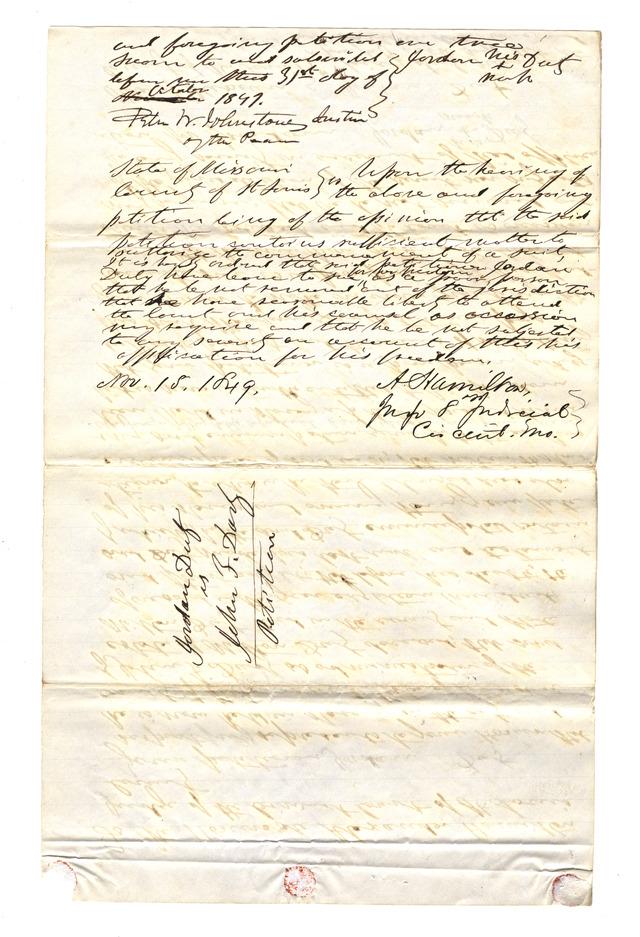 and foregoing petition are true
sworn to and subscribed } Jordan his Duty
before me this 31st day of } + mark
October 1849. }
Peter W. Johnstone, Justice
of the Peace
State of Missouri
County of St Louis } ss Upon the hearing of
the above and foregoing
petition being of the opinion tht the said
petition contains sufficient matter to
authorize the commencement of a suit,
it is hereby ordered that said petitioner Jordan
Duty have leave to sue as a poor person
for his freedom
that he be not removed out of the jurisdiction
that he have reasonable liberty to attend
the Court and his counsel, as occasion
may require and that he be not subjected
to any severity on account of this his
application for his freedom.
Nov. 18. 1849. A Hamilton,
Judge 8th Judicial }
Circuit. Mo. }
Jordan Duty
vs
John F. Darby
Petition